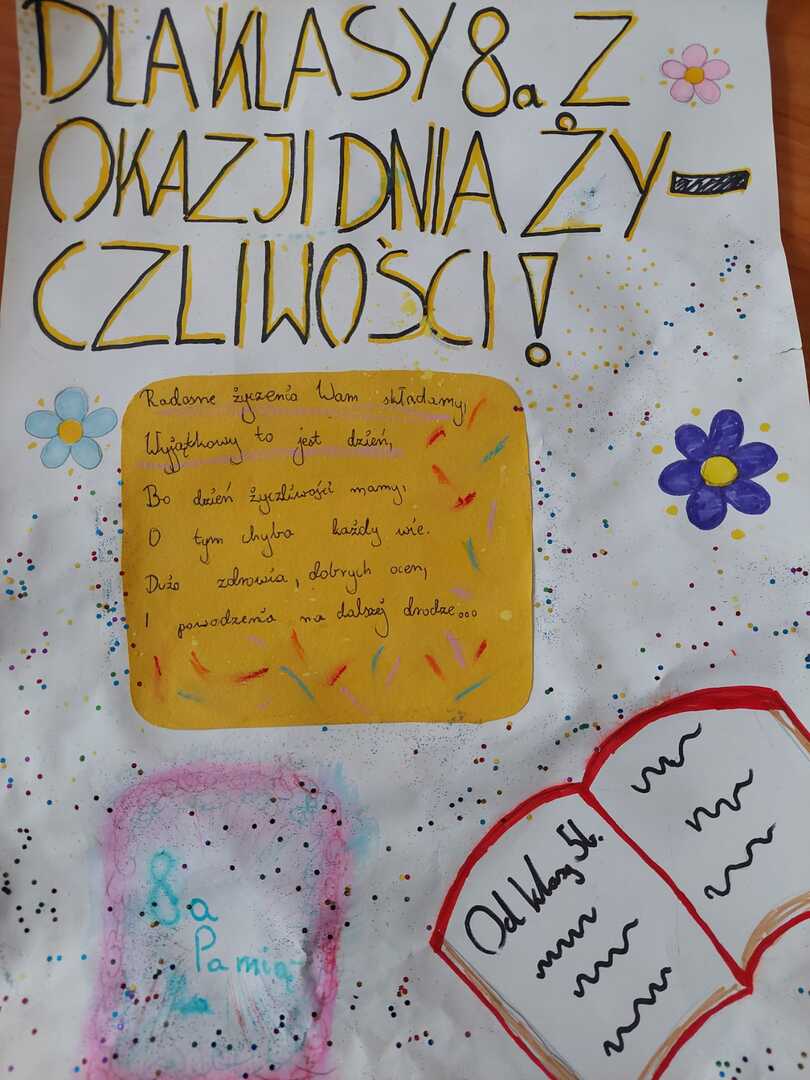 DLA KLASY 8a Z
OKAZJI DNIA ŻY-
CZLIWOŚCI!
Radosne życzenia Wam składamy,
Wyjątkowy to jest dzień,
Bo dzień życzliwości mamy,
O tym chyba każdy wie.
Dużo zdrowia, dobrych ocen,
I powodzenia na dalszej drodze...
Od klasy 5b.
8a
Pamią-